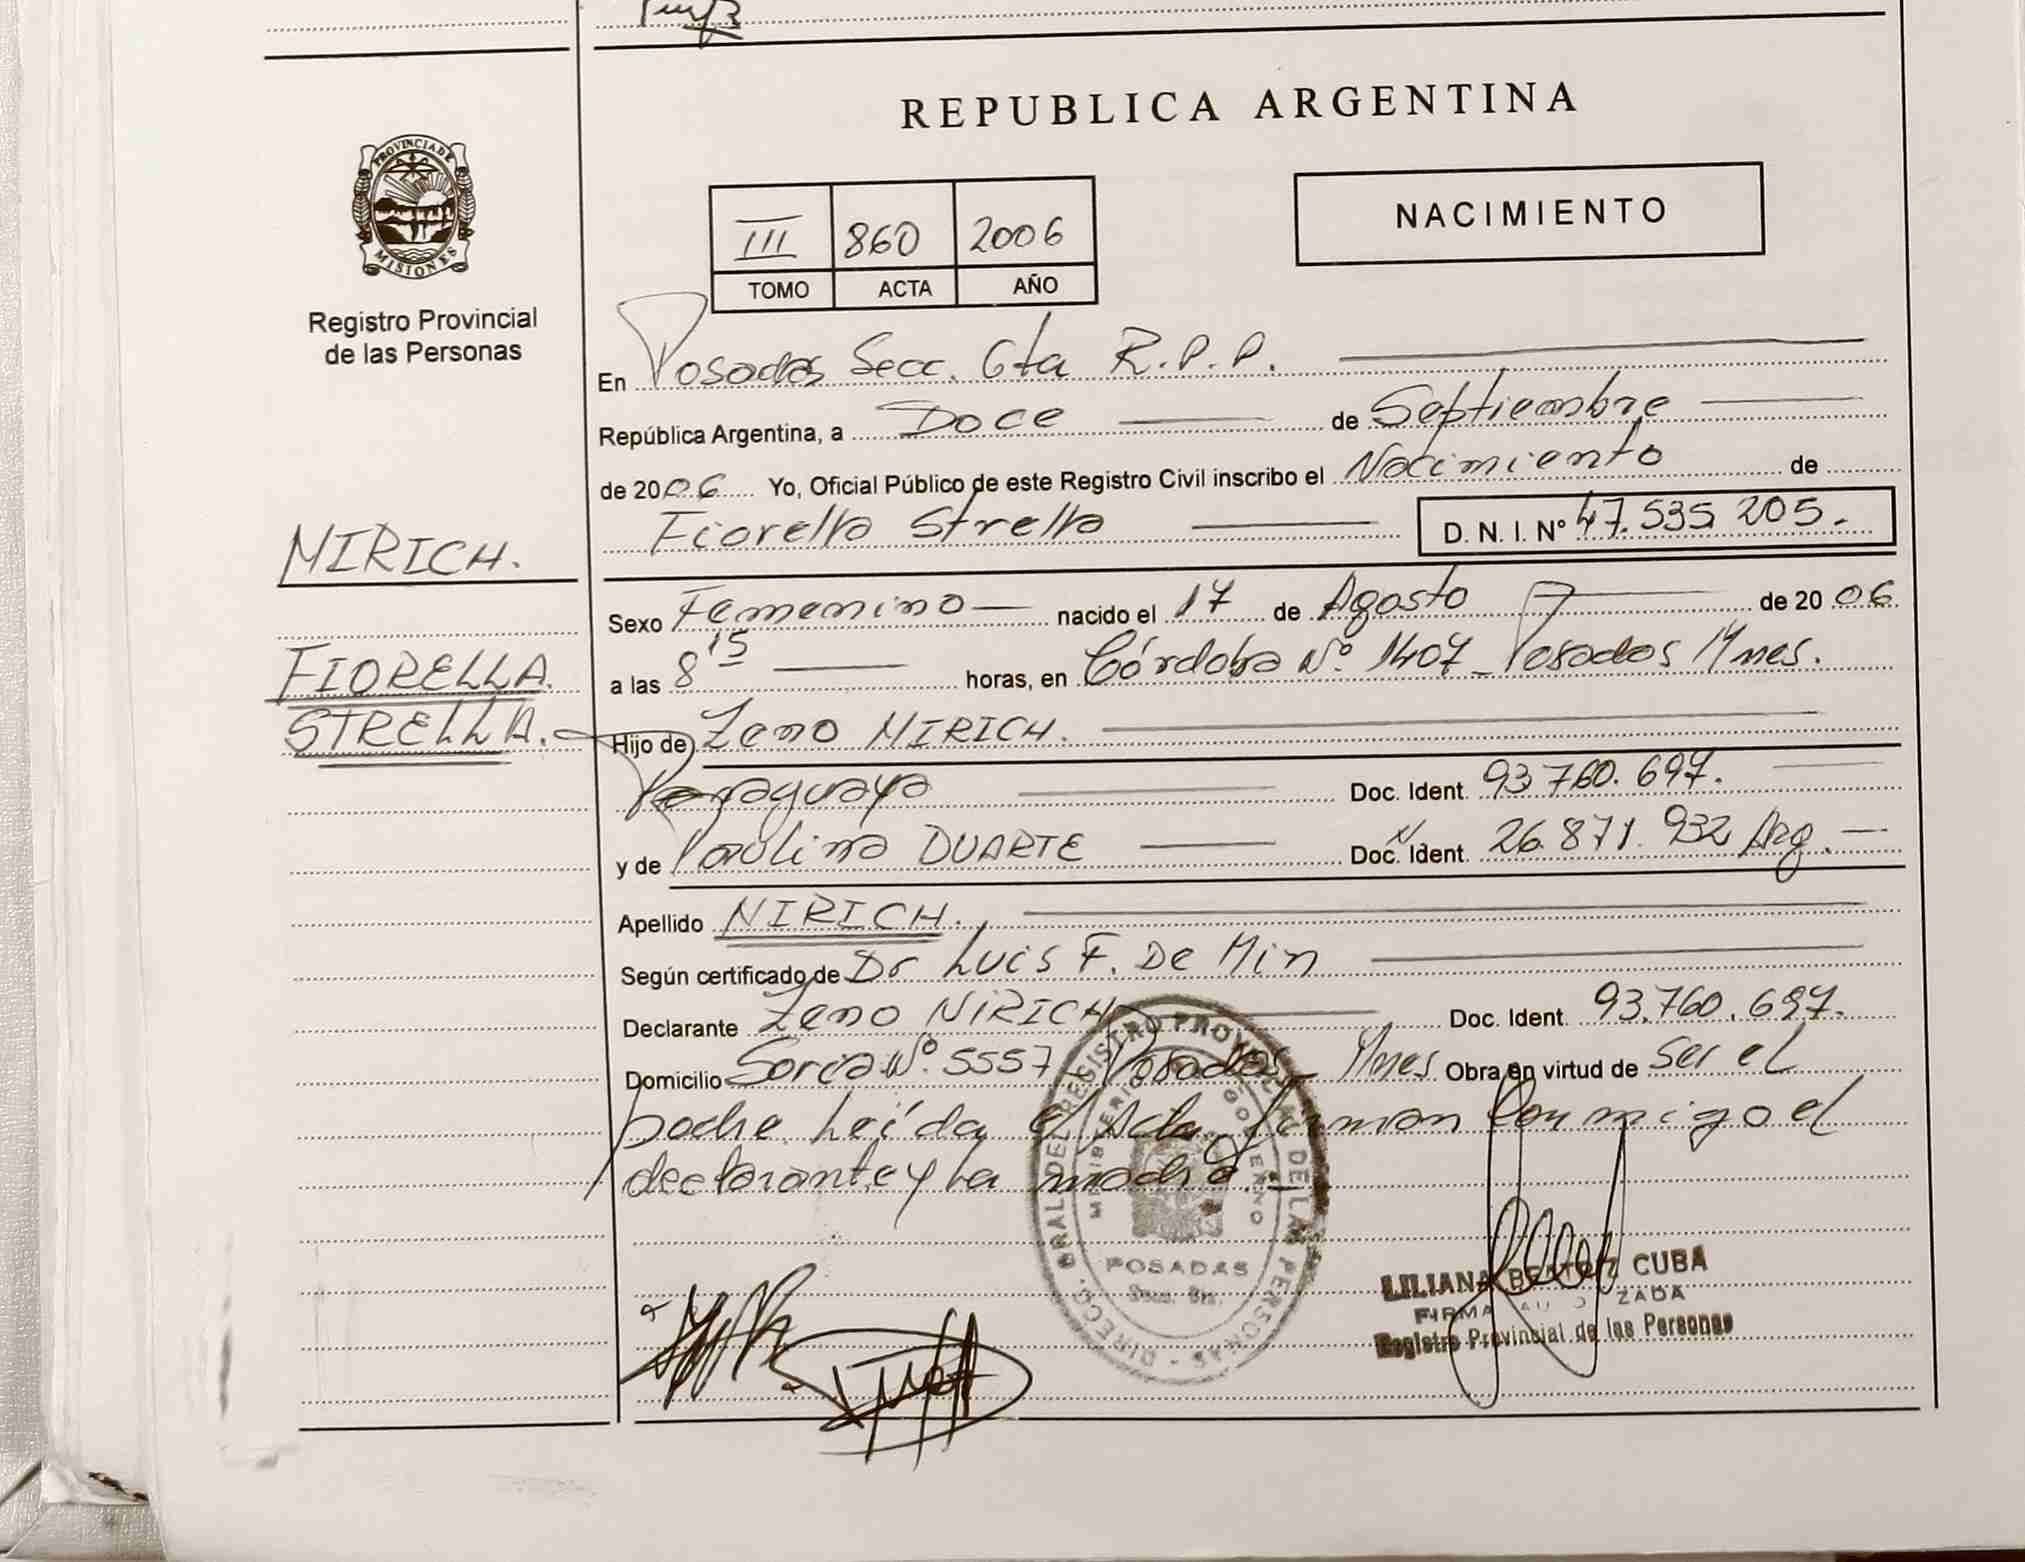 REPUBLICA ARGENTINA
PROVINCIA DE
MISIONES
Registro Provincial
de las Personas
NACIMIENTO
III 860 2006
TOMO ACTA AÑO
En Posadas Secc. 6ta R.P.P.
República Argentina, a Doce de Septiembre
de 2006 Yo, Oficial Público de este Registro Civil inscribo el Nacimiento de
Fiorella Strella D. N. I. Nº 47.535.205.-
MIRICH.
FIORELLA
STRELLA.
Sexo Femenino nacido el 17 de Agosto de 2006
a las 8 15 horas, en Córdoba Nº 1407 - Posadas Mnes.
Hijo de Zeno MIRICH.
Paraguaya Doc. Ident. 93.760.697.
y de Paulina DUARTE Doc. Ident. 26.871.932 Arg.
Apellido MIRICH.
Según certificado de Dr Luis F. De Min
Declarante Zeno MIRICH Doc. Ident. 93.760.697.
Domicilio Nº 5557 - Posadas - Mnes Obra en virtud de ser el
padre. Leída el Acta firman conmigo el
declarante y la madre.-
DIRECC. GRAL. DEL REGISTRO PROVINCIAL DE LAS PERSONAS -
MINISTERIO GOBIERNO
POSADAS
LILIANA BEATRIZ CUBA
FIRMA AUTORIZADA
Registro Provincial de las Personas